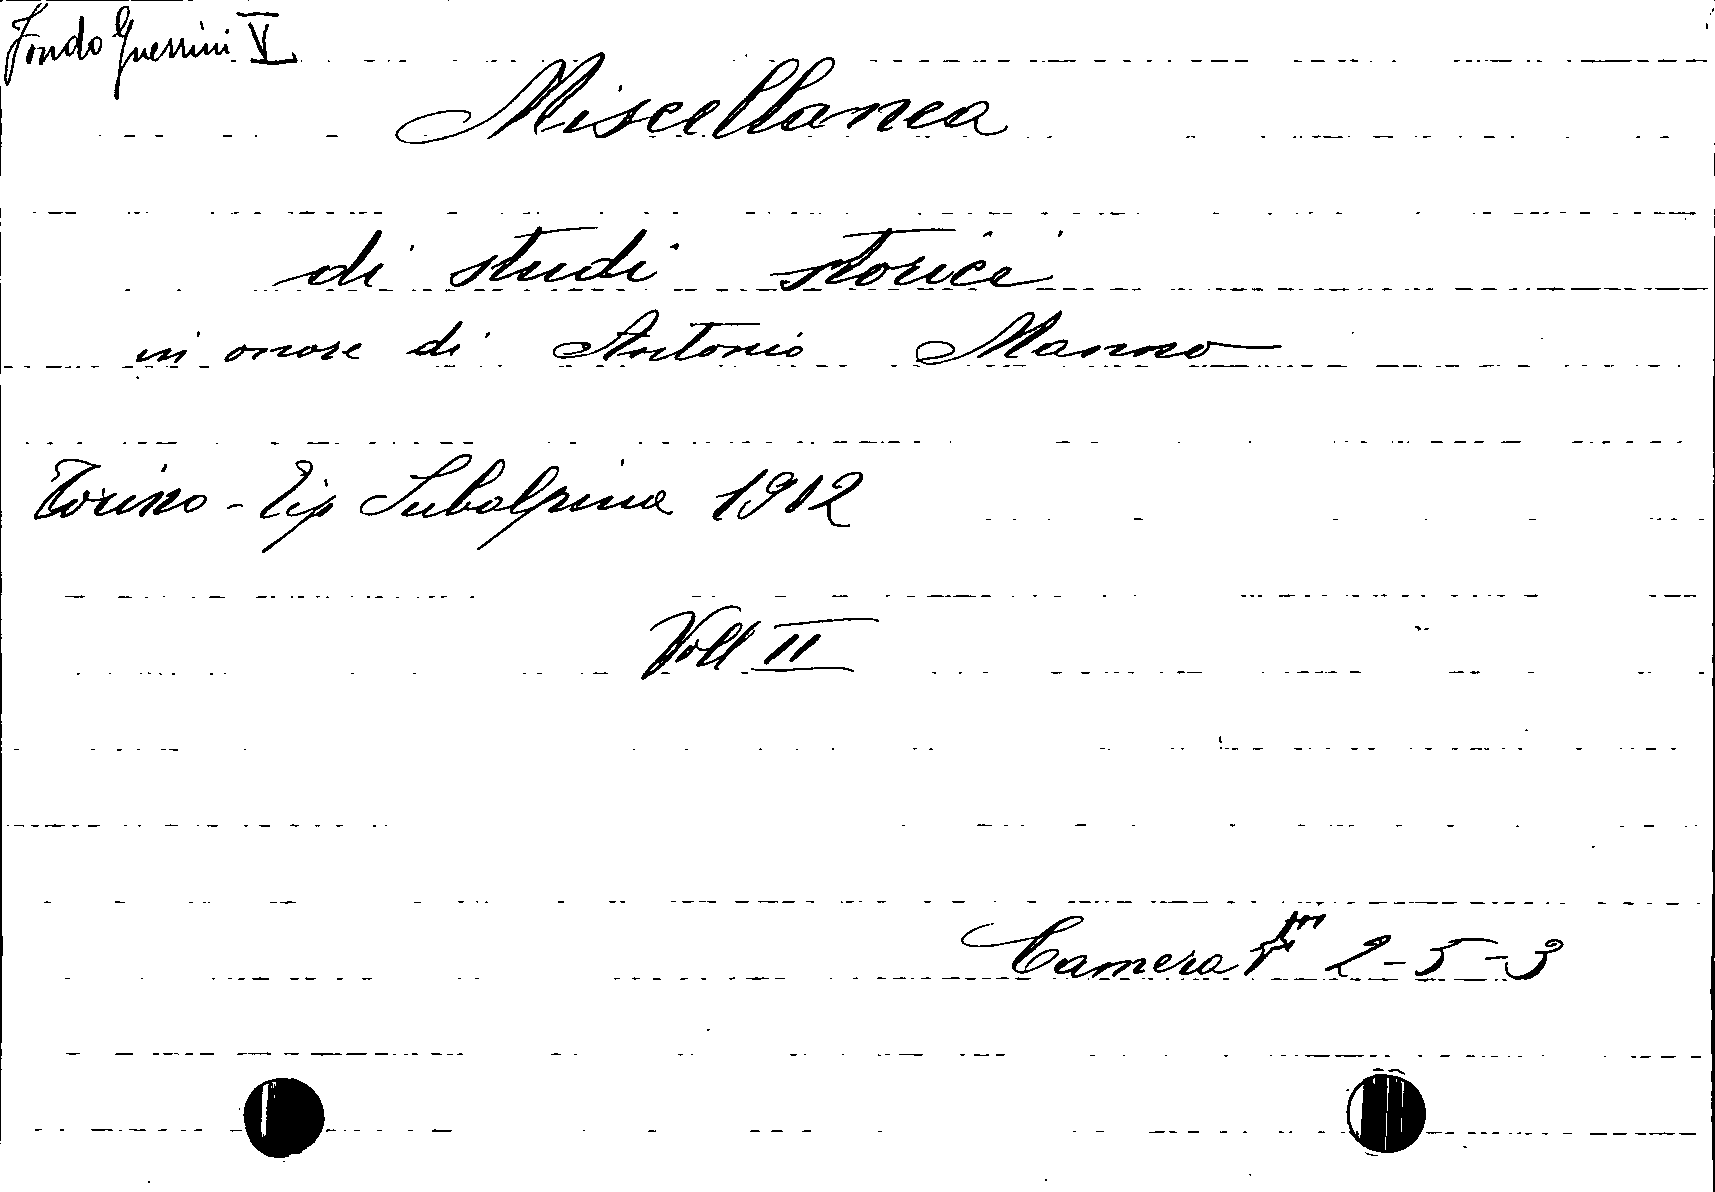 Fondo Guerrini V
Miscellanea
di studi storici
in onore di Antonio Manno
Torino - Tip Subalpina 1912
Voll II
Camera 2-5-3